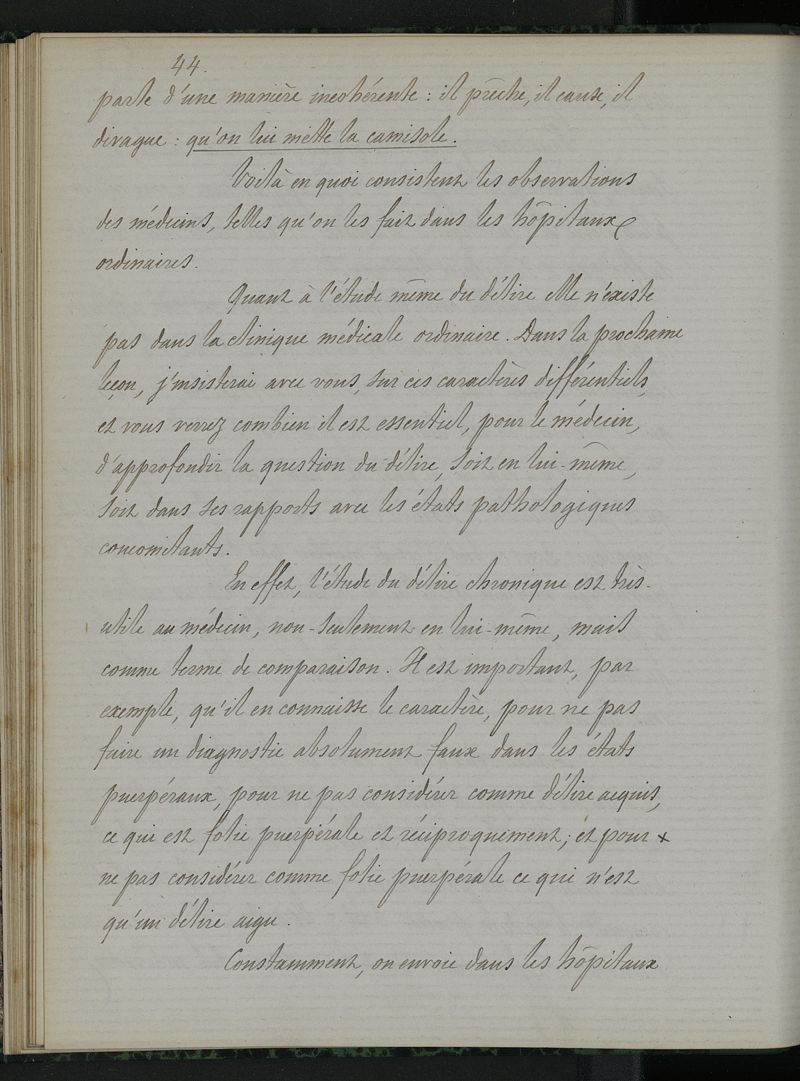 44.
parle d'une manière incohérente : il prêche, il cause, il
divague : qu'on lui mette la camisole.
Voilà en quoi consistent les observations
des médecins, telles qu'on les fait dans les hôpitaux
ordinaires.
Quant à l'étude même du délire elle n'existe
pas dans la clinique médicale ordinaire. Dans la prochaine
leçon, j'insisterai avec vous, sur ces caractères différentiels,
et vous verrez combien il est essentiel, pour le médecin,
d'approfondir la question du délire, soit en lui-même,
soit dans ses rapports avec les états pathologiques
concomitants.
En effet, l'étude du délire chronique est très-
utile au médecin, non-seulement en lui-même, mais
comme terme de comparaison. Il est important, par
exemple, qu'il en connaisse le caractère, pour ne pas
faire un diagnostic absolument faux dans les états
puerpéraux, pour ne pas considérer comme délire acquis,
ce qui est folie puerpérale et réciproquement; et pour x
ne pas considérer comme folie puerpérale ce qui n'est
qu'un délire aigu.
Constamment, on envoie dans les hôpitaux